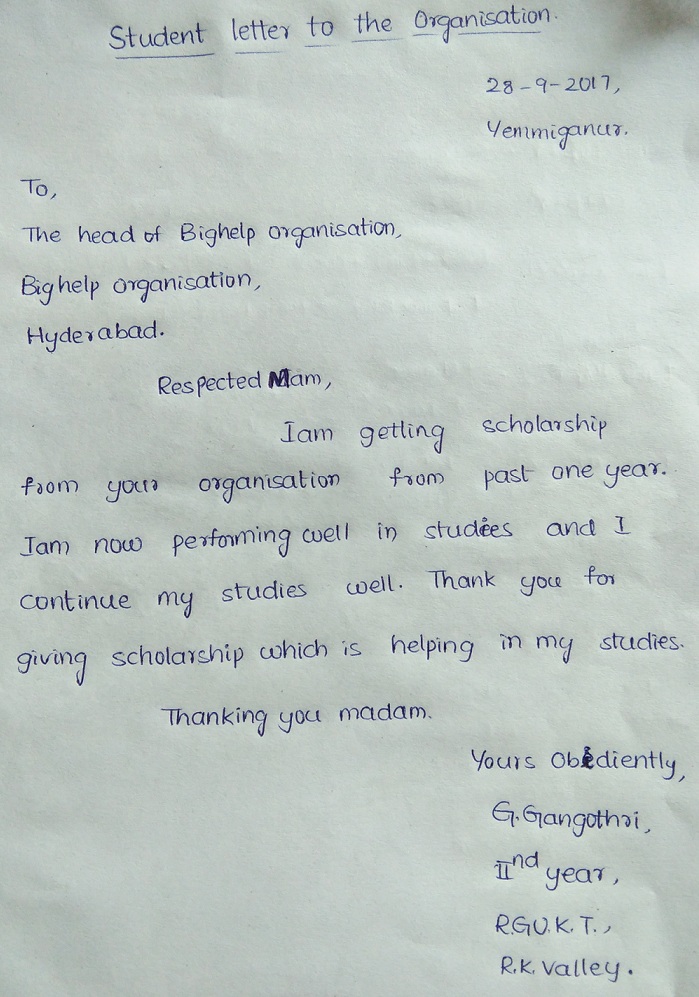 Student letter to the Organisation.
28-9-2017,
Yemmiganur.
To,
The head of Bighelp organisation,
Bighelp organisation,
Hyderabad.
Respected Mam,
Iam getting scholarship
from your organisation from past one year.
Iam now performing well in studies and I
continue my studies well. Thank you for
giving scholarship which is helping in my studies.
Thanking you madam.
Yours Obediently,
G.Gangothri,
IInd year,
R.G.U.K.T.,
R.K. Valley.